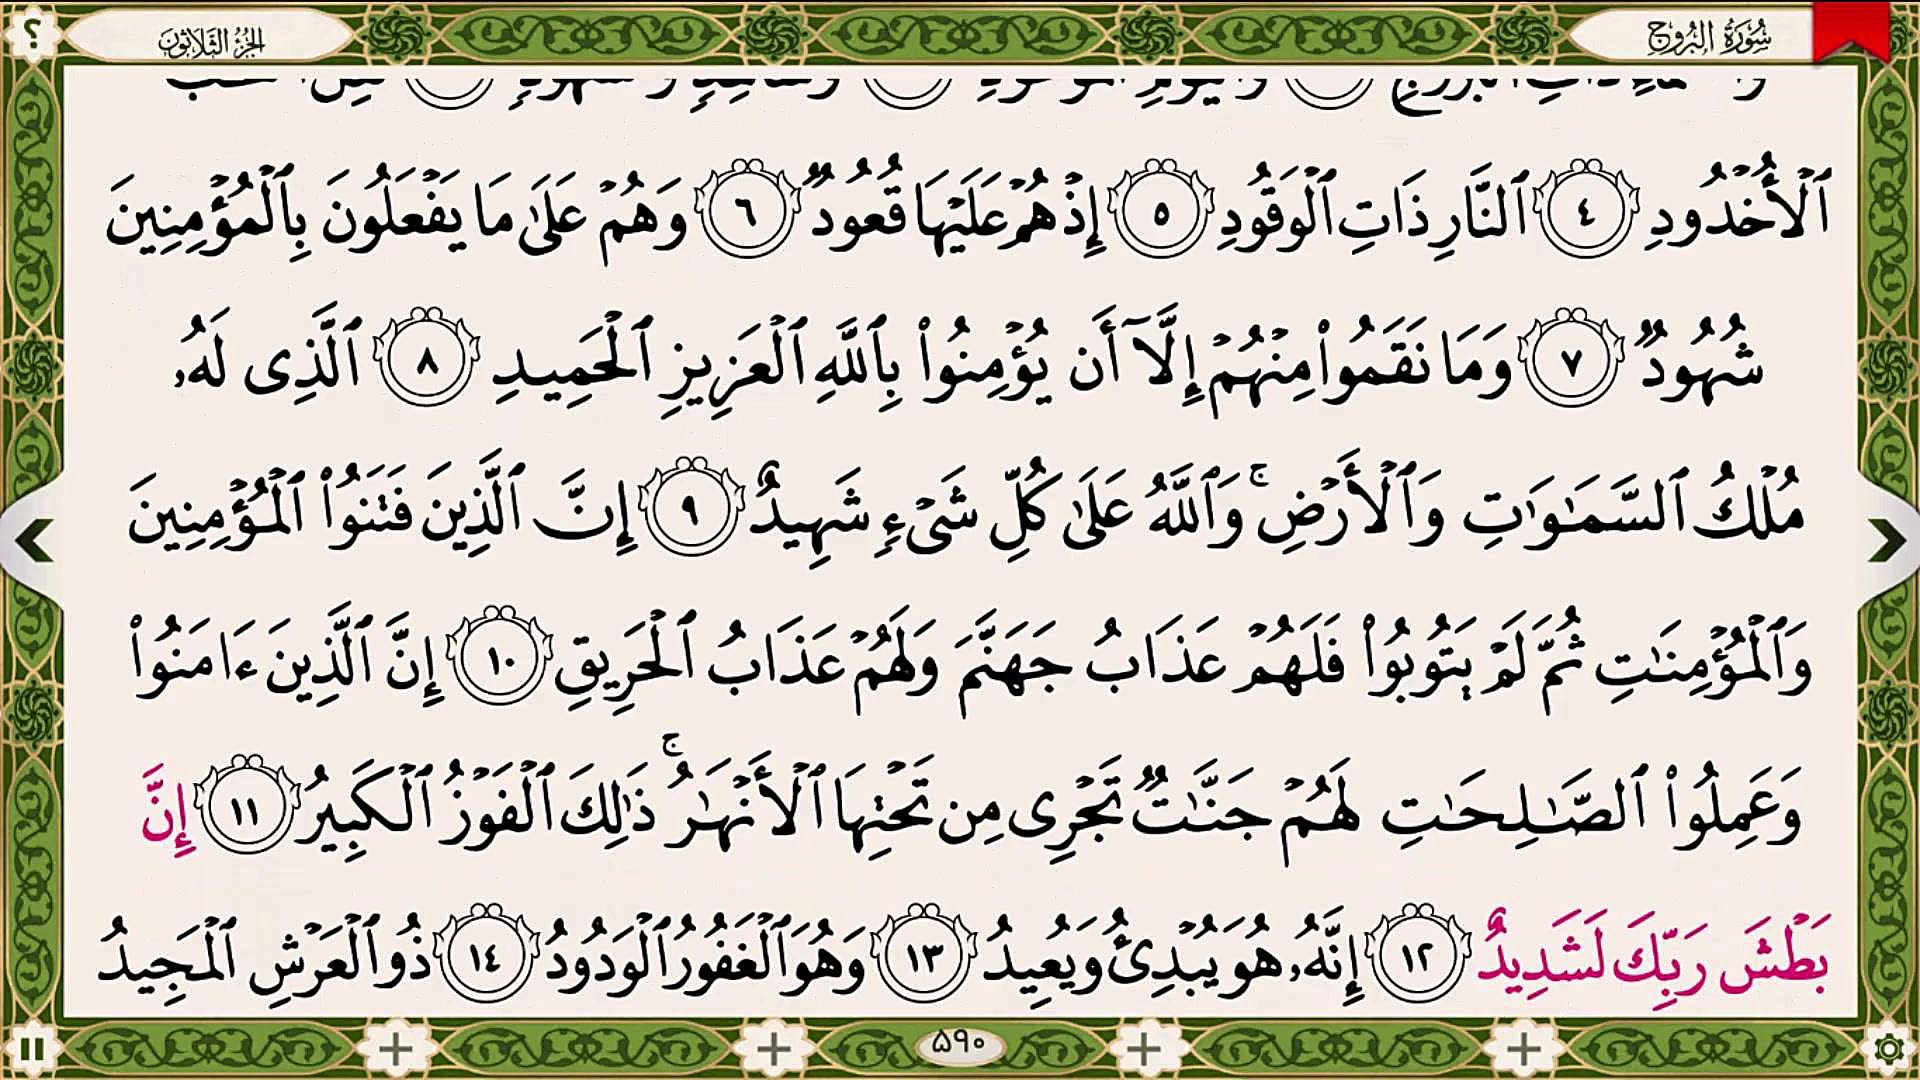 ؟
الجزء الثلاثون
سورة البروج
ٱلْأُخْدُودِ ٤ ٱلنَّارِ ذَاتِ ٱلْوَقُودِ ٥ إِذْ هُمْ عَلَيْهَا قُعُودٌ ٦ وَهُمْ عَلَىٰ مَا يَفْعَلُونَ بِٱلْمُؤْمِنِينَ
شُهُودٌ ٧ وَمَا نَقَمُوا۟ مِنْهُمْ إِلَّآ أَن يُؤْمِنُوا۟ بِٱللَّهِ ٱلْعَزِيزِ ٱلْحَمِيدِ ٨ ٱلَّذِى لَهُۥ
مُلْكُ ٱلسَّمَٰوَٰتِ وَٱلْأَرْضِ ۚ وَٱللَّهُ عَلَىٰ كُلِّ شَىْءٍ شَهِيدٌ ٩ إِنَّ ٱلَّذِينَ فَتَنُوا۟ ٱلْمُؤْمِنِينَ
وَٱلْمُؤْمِنَٰتِ ثُمَّ لَمْ يَتُوبُوا۟ فَلَهُمْ عَذَابُ جَهَنَّمَ وَلَهُمْ عَذَابُ ٱلْحَرِيقِ ١٠ إِنَّ ٱلَّذِينَ ءَامَنُوا۟
وَعَمِلُوا۟ ٱلصَّٰلِحَٰتِ لَهُمْ جَنَّٰتٌ تَجْرِى مِن تَحْتِهَا ٱلْأَنْهَٰرُ ۚ ذَٰلِكَ ٱلْفَوْزُ ٱلْكَبِيرُ ١١ إِنَّ
بَطْشَ رَبِّكَ لَشَدِيدٌ ١٢ إِنَّهُۥ هُوَ يُبْدِئُ وَيُعِيدُ ١٣ وَهُوَ ٱلْغَفُورُ ٱلْوَدُودُ ١٤ ذُو ٱلْعَرْشِ ٱلْمَجِيدُ
۵۹۰